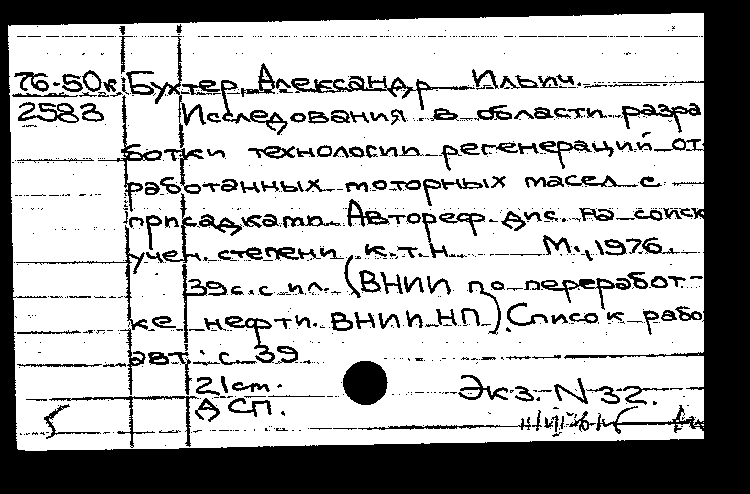 76-50к Бухтер, Александр Ильич.
2583 Исследования в области разра
ботки технологии регенераций от
работанных моторных масел с
присадками. Автореф. дис. на соиск
учен. степени к.т.н. М., 1976.
39с. с ил. (ВНИИ по переработ-
ке нефти. ВНИИ НП). Список рабо
авт.: с 39
21см.
ДСП. Экз. N 32.
5